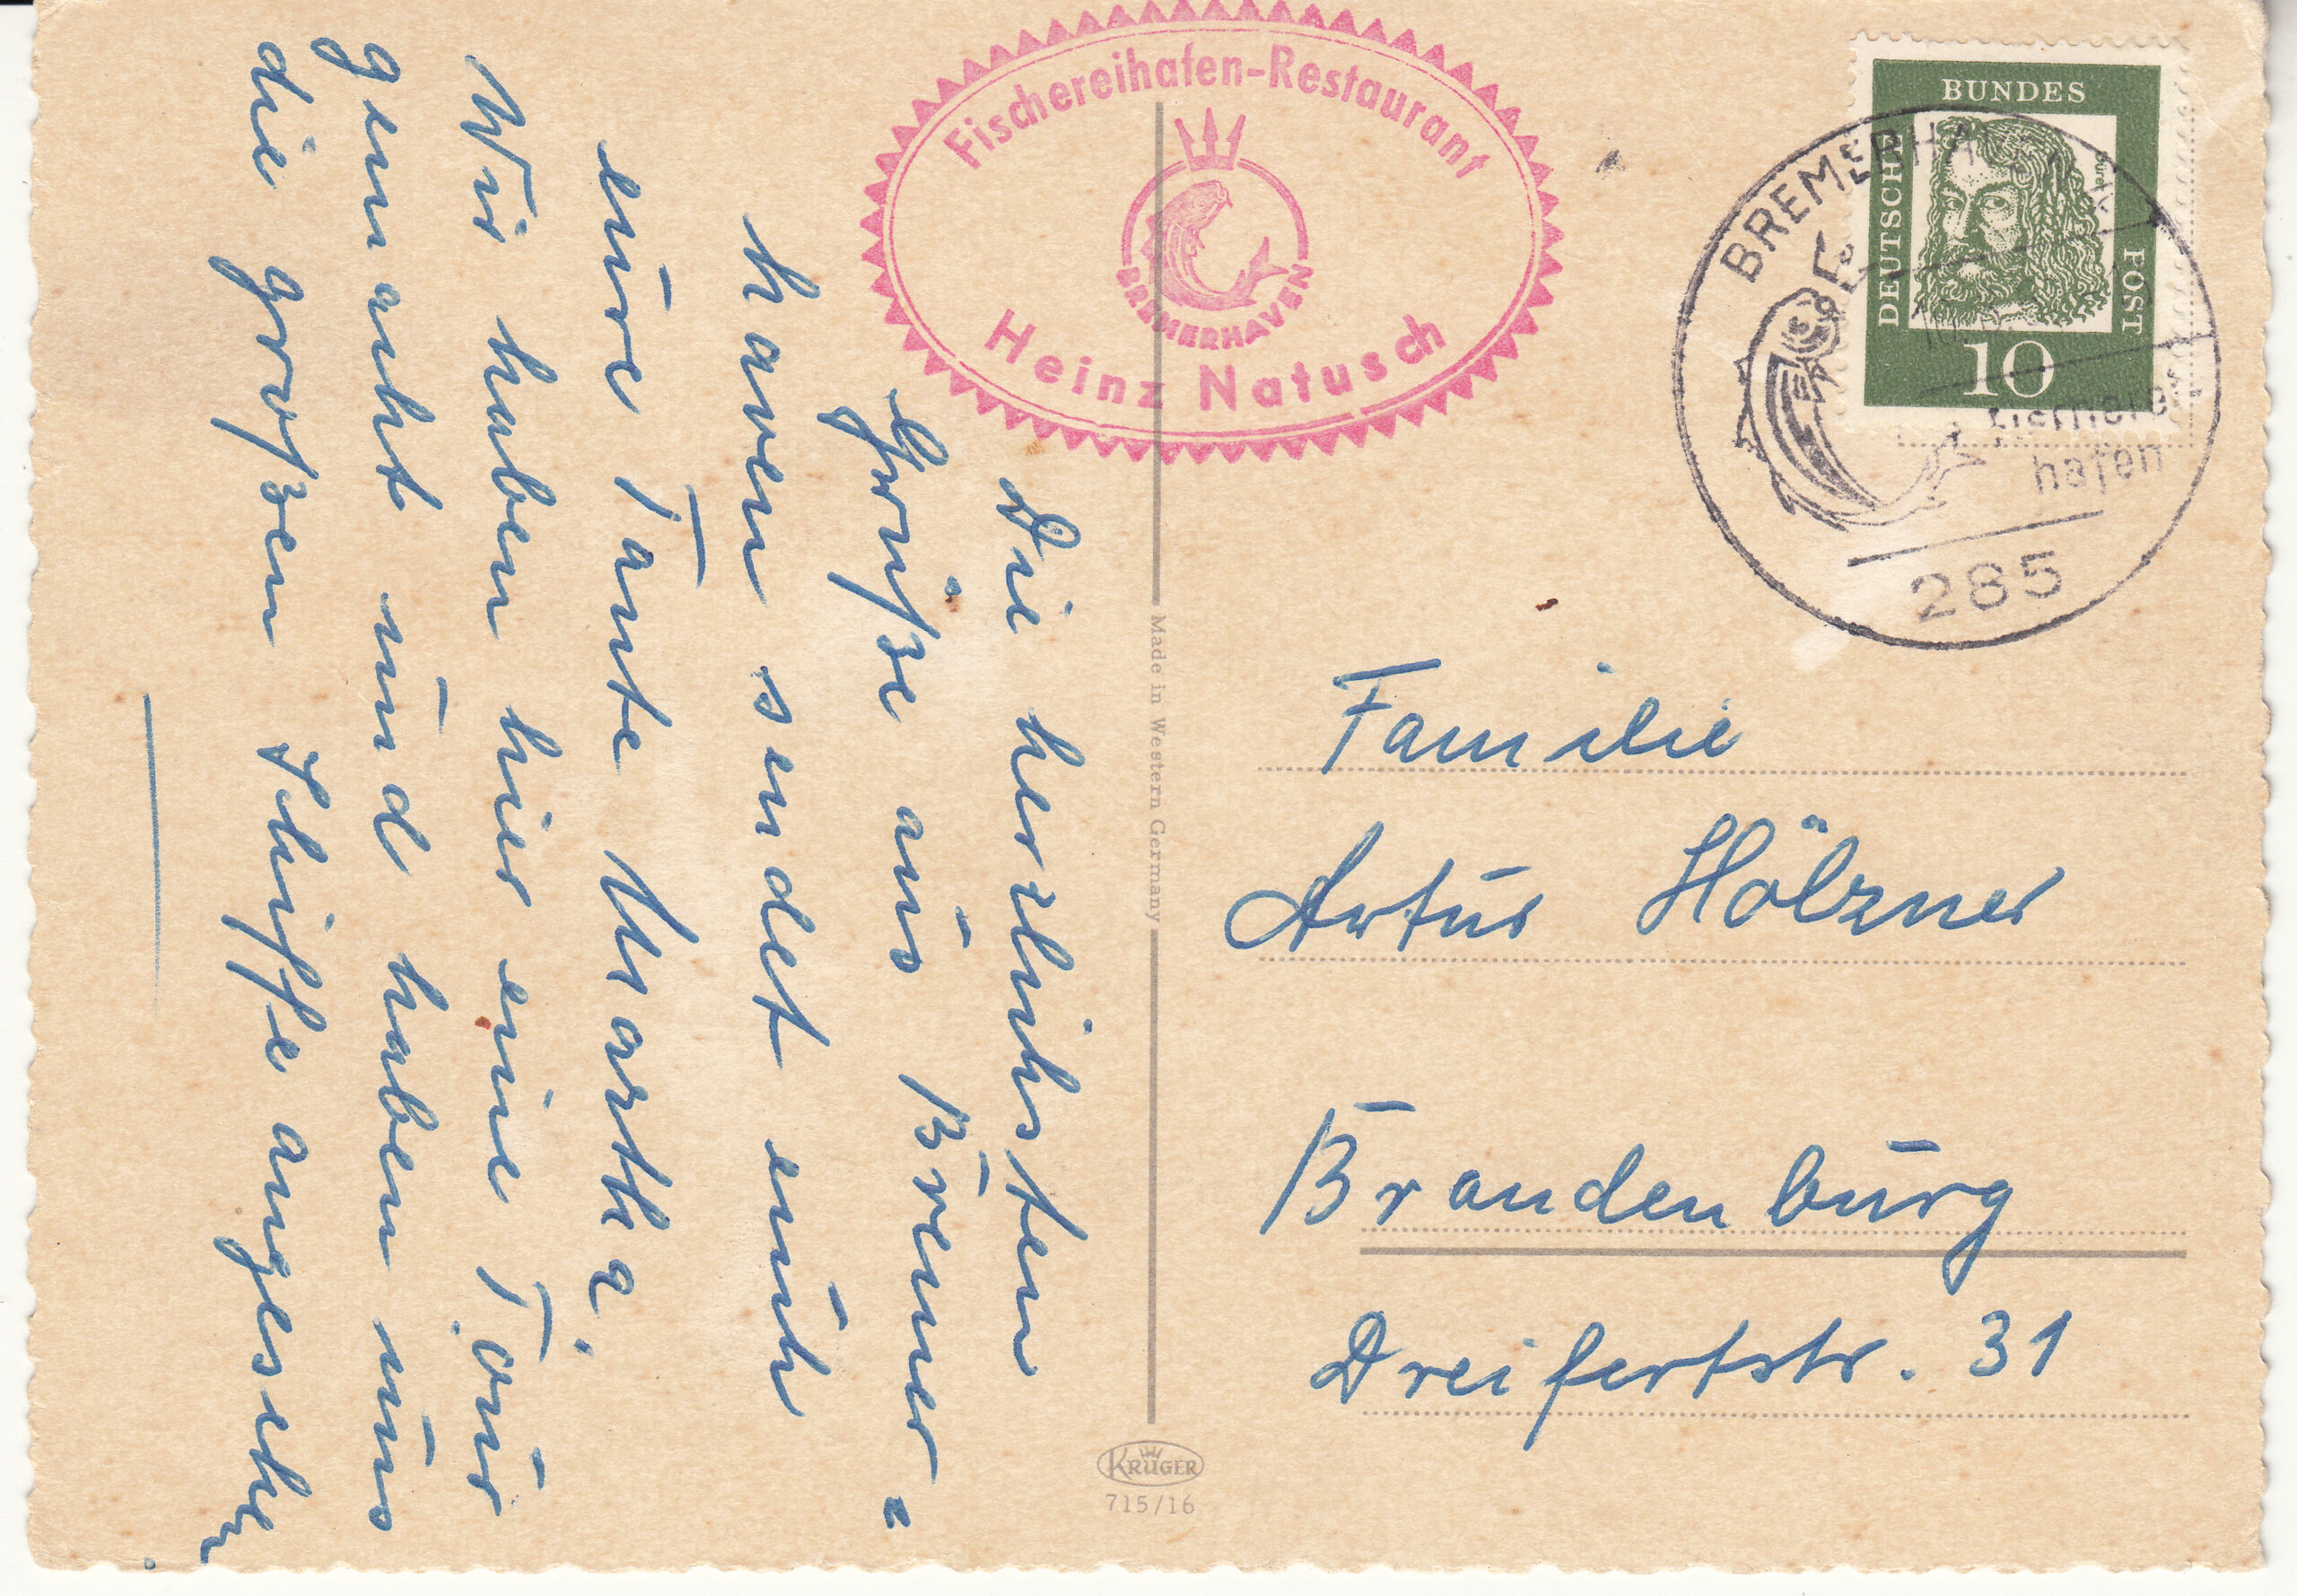 Die herzlichsten
Grüße aus Bremer=
haven sendet euch
eure Tante Martha.
Wir haben hier eine Tour
gemacht und haben uns
die großen Schiffe angesehen.
Fischereihafen-Restaurant
BREMERHAVEN
Heinz Natusch
BUNDES
DEUTSCHE
POST
Dürer
10
BREMERHAVEN
Fischerei
hafen
285
Made in Western Germany
Familie
Artur Hölzner
Brandenburg
Dreifertstr. 31
KRÜGER
715/16